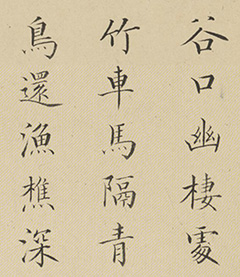 谷口幽棲處
竹車馬隔青
鳥還漁樵深